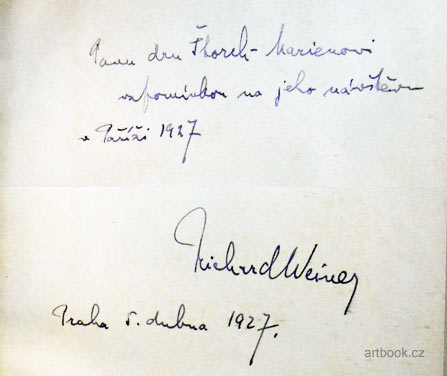 Panu dru Štorch-Marienovi
vzpomínkou na jeho návštěvu
v Paříži 1927
Richard Weiner
Praha 5. dubna 1927.
artbook.cz